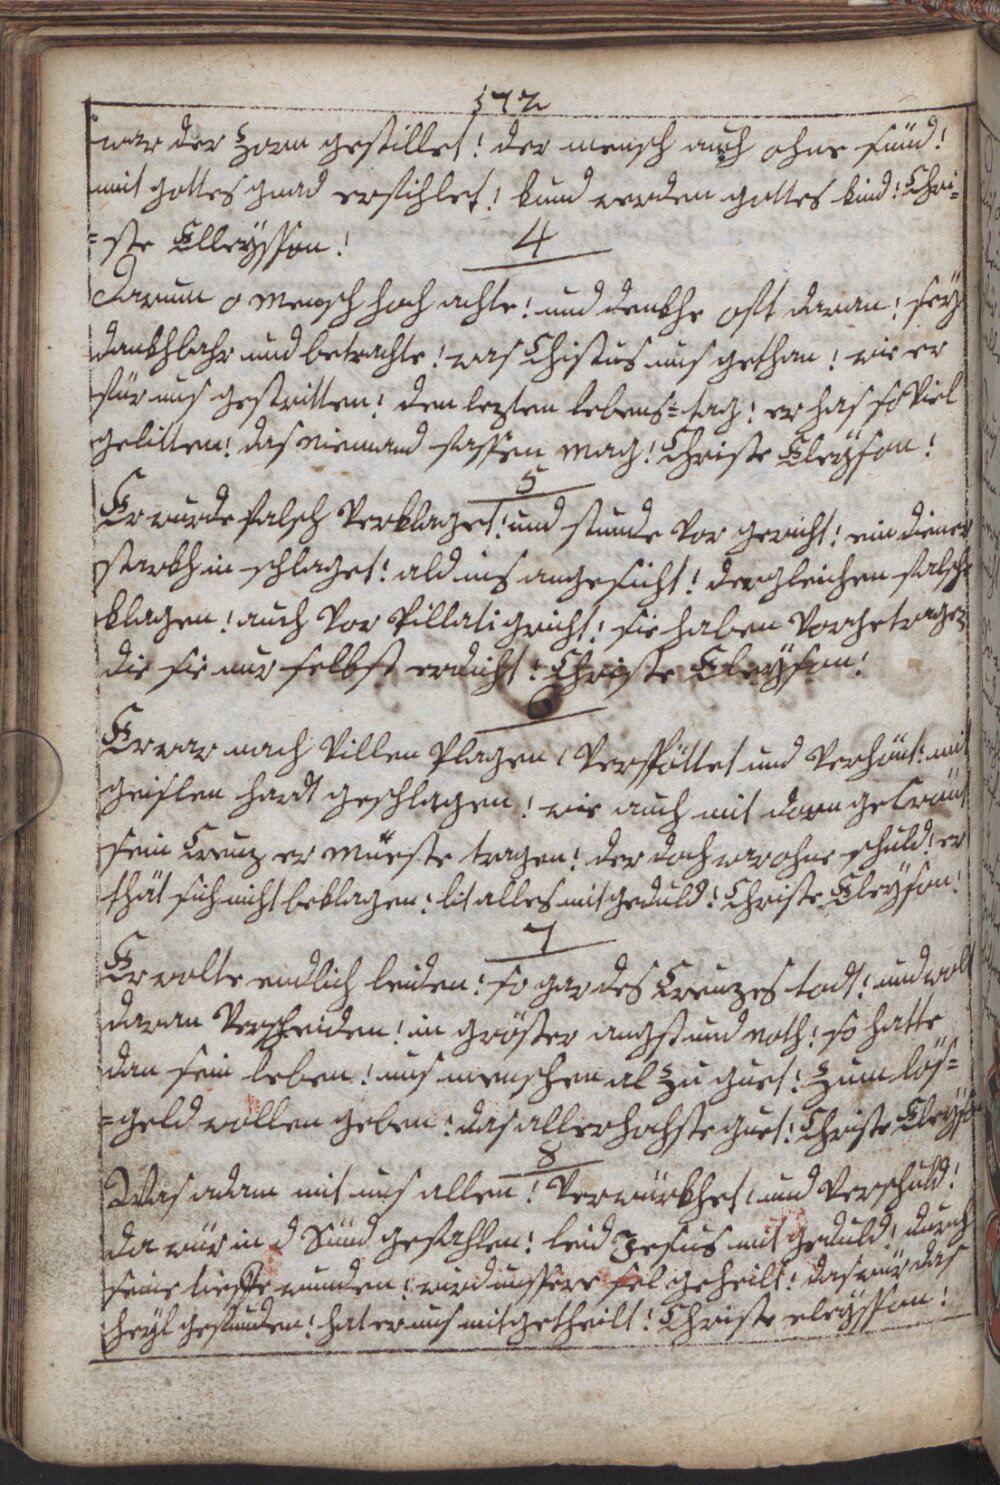 172
war der Zorn gestillet! der mensch auch ohne sünd!
mit gottes gnad erfihlet! kund werden gottes kind! Chri=
=ste Elleÿsson!
4
Darum o Mensch hoch achte! und denkhe oft daran! seÿ
dankhbahr und betrachte! was Chistus uns gethan! wie er
für uns gestritten! den lezten lebens=tag! er has so Viel
gelitten! das niemand fassen mag! Christe Eleÿson!
5
Er wurde falsch Verklaget! und stunde Vor gericht! ein diener
starkh in schlaget! ald ins angesicht! dergleichen falsche
klagen! auch Vor Pillati gricht! sie haben Vorgetragen
die sie nur selbst erdicht! Christe Eleÿson!
6
Er war nach Villen Plagen! Verspöttet und Verhönt! mit
geislen hardt geschlagen! wie auch mit dorn gekrönt
sein Creuz er müeste tragen! der doch war ohne schuld! er
thät sich nicht beklagen! lit alles mit geduld! Christe Eleÿson!
7
Er wolte endlich leiden! so gar des Creuzes todt! und wolt
daran Verscheiden! in gröster angst und noth! so hatte
dan sein leben! uns menschen al zu guet! zum lös=
=geld wollen geben! das allerhochste guet! Christe Eleÿson
8
Was adam mit uns allen! Verwürkhet! und Verschuld!
da wür in d Sünd gefahlen! leid Jesus mit geduld! durch
seine lieste wunden! wird unssere sel geheilt! das wür das
heÿl gefunden! hat er uns mitgetheilt! Christe eleÿsson!